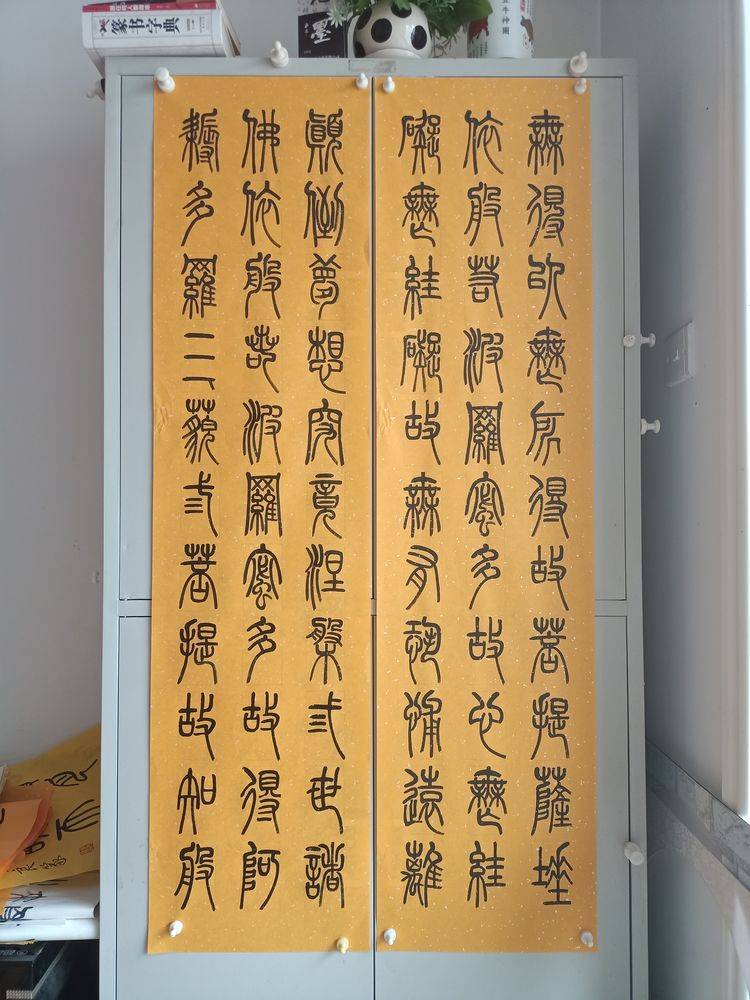 篆书字典
墨
無得以無所得故菩提薩埵
依般若波羅蜜多故心無絓
礙無絓礙故無有恐怖遠離
顛倒夢想究竟涅槃弎世諸
佛依般若波羅蜜多故得阿
耨多羅三藐弎菩提故知般